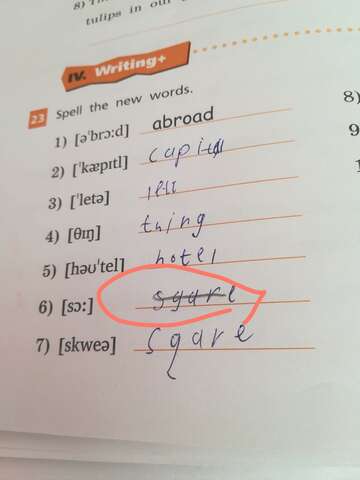 8) Th
tulips in our
IV. Writing+
23 Spell the new words.
1) [ə'brɔ:d] abroad
2) ['kæpɪtl]
3) ['letə]
4) [θɪŋ] thing
5) [həʊ'tel] hotel
6) [sɔ:] sgare
7) [skweə] sqare
8)
9
1